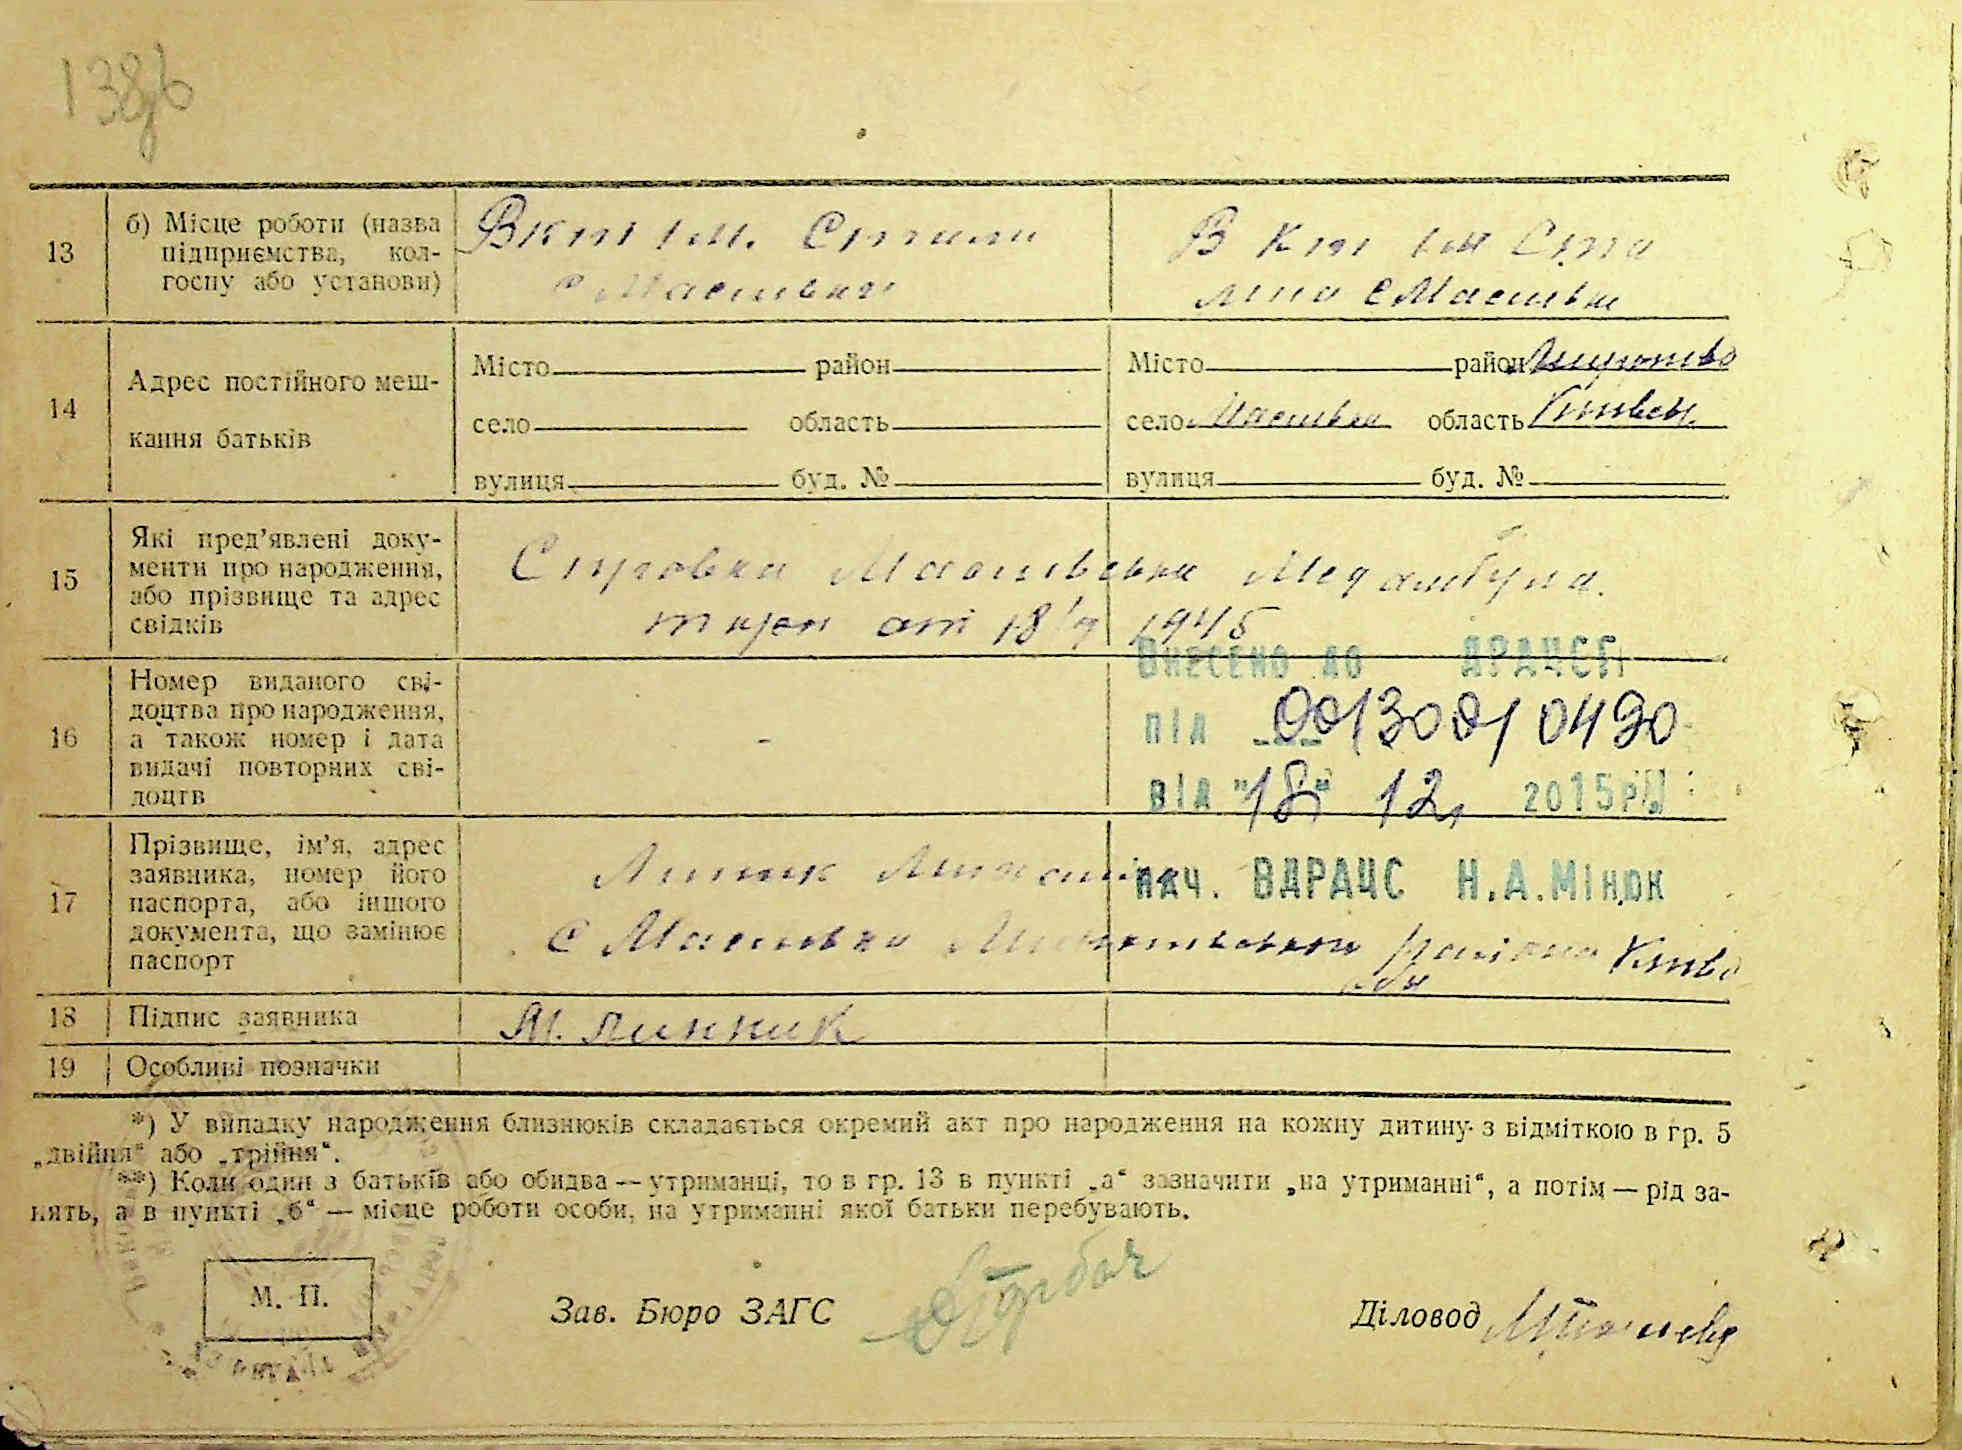 138
13
б) Місце роботи (назва
підприємства, кол-
госпу або установи)
В к
с Масівки
В к ім Ста
ліна с Масівки
14
Адрес постійного меш-
кання батьків
Місто район
село область
вулиця буд. №
Місто район
село Масівка область Київськ.
вулиця буд. №
15
Які пред’явлені доку-
менти про народження,
або прізвище та адрес
свідків
Справка Мед амбула
от 18 1945
16
Номер виданого сві-
доцтва про народження,
а також номер і дата
видачі повторних сві-
доцтв
-
Внесено до ДРАЦСГ
під 00130010490
від "18" 12, 2015р.
нач. ВДРАЦС Н.А.Мінюк
17
Прізвище, ім’я, адрес
заявника, номер його
паспорта, або іншого
документа, що замінює
паспорт
с Масівка району Київ
обл
18
Підпис заявника
М. Линник
19
Особливі позначки
*) У випадку народження близнюків складається окремий акт про народження на кожну дитину з відміткою в гр. 5
„двійня“ або „трійня“.
**) Коли один з батьків або обидва — утриманці, то в гр. 13 в пункті „а“ зазначити „на утриманні“, а потім — рід за-
нять, а в пункті „б“ — місце роботи особи, на утриманні якої батьки перебувають.
М. П.
Зав. Бюро ЗАГС
Діловод